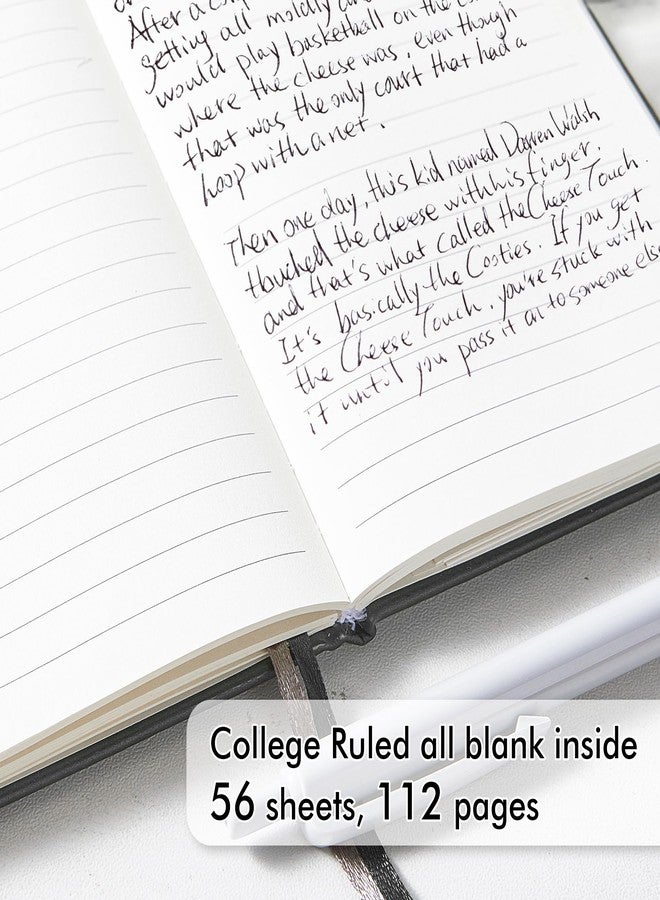 After a
getting all moldy an
would play basketball on the co
where the cheese was, even though
that was the only court that had a
hoop with a net.
Then one day, this kid named Darren Walsh
touched the cheese with his finger.
and that's what called the Cheese Touch.
It's basically the Cooties. If you get
the Cheese Touch, you're stuck with
it until you pass it on to someone else
College Ruled all blank inside
56 sheets, 112 pages